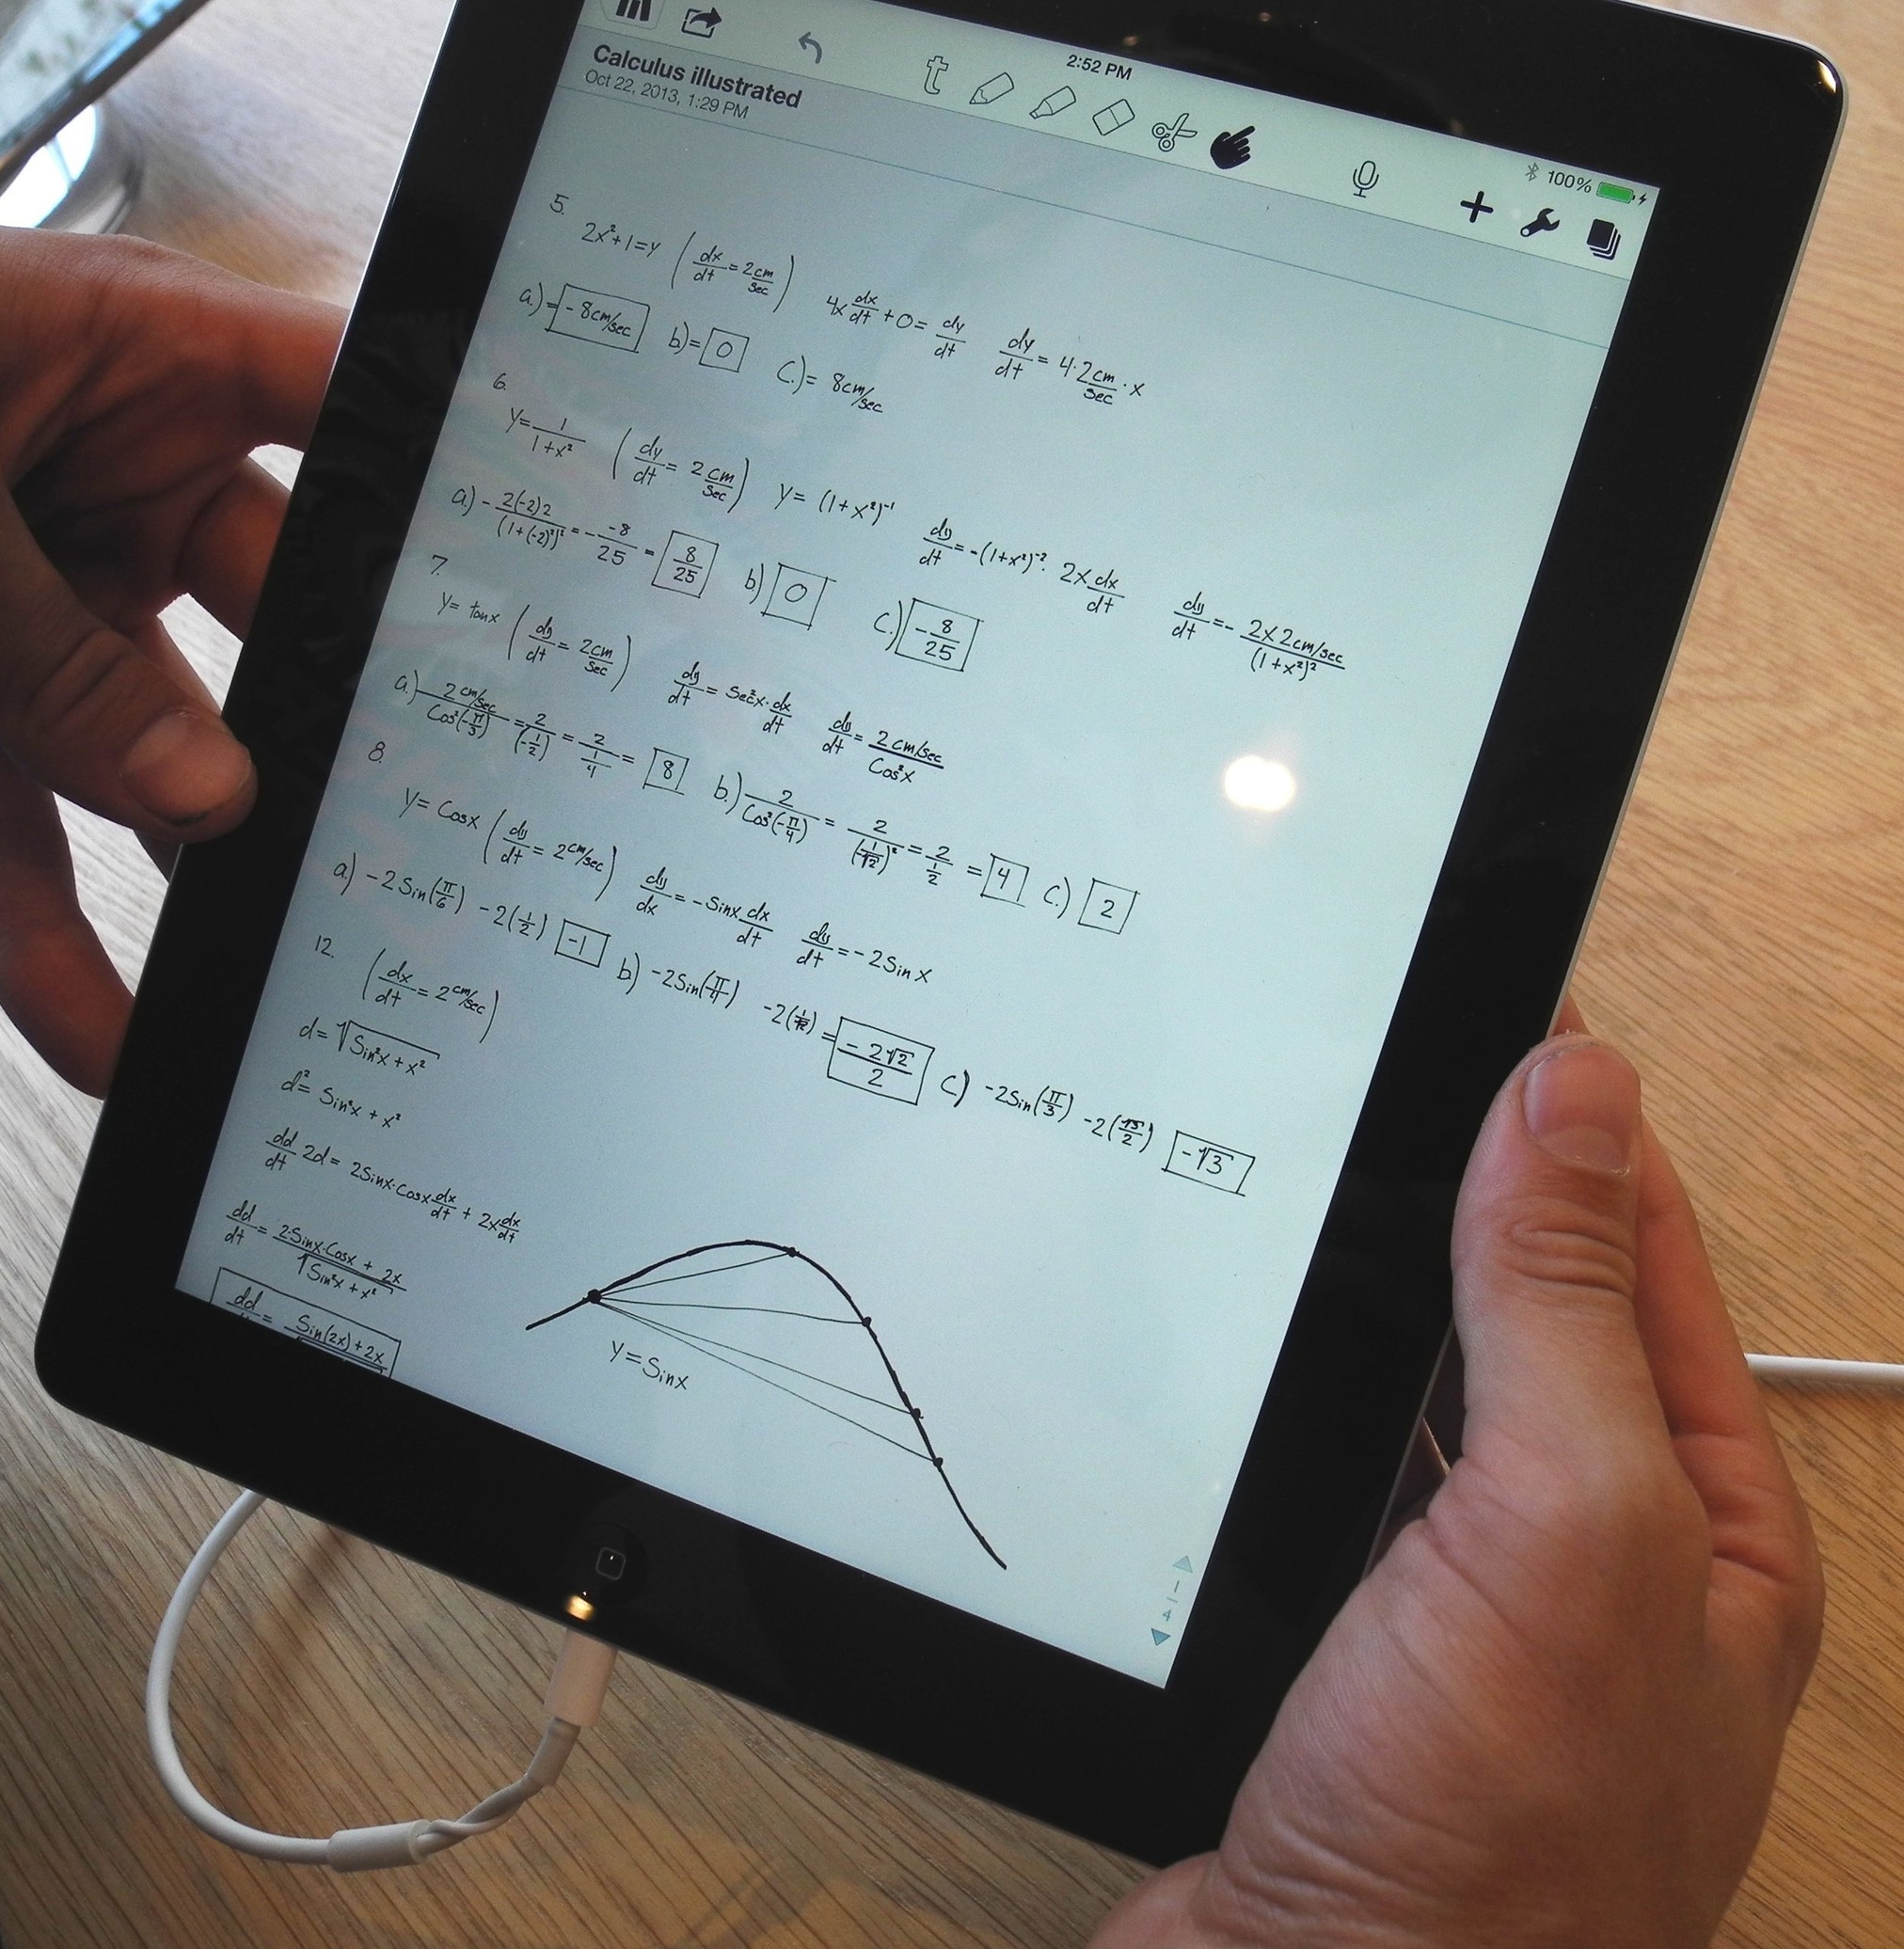 2:52 PM
100%
Calculus illustrated
Oct 22, 2013, 1:29 PM
5.
2x²+1=y (dx/dt = 2cm/sec) 4x dx/dt + 0 = dy/dt dy/dt = 4·2cm/sec · x
a.)= -8cm/sec b)= 0 c.)= 8cm/sec
6.
y= 1/(1+x²) (dy/dt = 2cm/sec) y= (1+x²)⁻¹ dy/dt = -(1+x²)⁻²· 2x dx/dt dy/dt = - 2x2cm/sec/(1+x²)²
a.) - 2(-2)2/(1+(-2)²)² = - -8/25 = 8/25 b) 0 c.) -8/25
7.
y= tanx (dy/dt = 2cm/sec) dy/dt = Sec²x·dx/dt dy/dt = 2cm/sec/Cos²x
a.) 2cm/sec/Cos²(-π/3) = 2/(-1/2) = 2/(1/4) = 8 b.) 2/Cos²(-π/4) = 2/(1/√2)² = 2/(1/2) = 4 c.) 2
8.
y= Cosx (dy/dt = 2cm/sec) dy/dx = -Sinx dx/dt dy/dt = -2Sinx
a) -2Sin(π/6) -2(1/2) -1 b) -2Sin(π/4) -2(1/√2) = -2√2/2 c) -2Sin(π/3) -2(√3/2) -√3
12.
(dx/dt = 2cm/sec)
d= √Sin²x + x²
d²= Sin²x + x²
dd/dt 2d = 2Sinx·Cosx dx/dt + 2x dx/dt
dd/dt = 2·Sinx·Cosx + 2x/√Sin²x + x²
dd = Sin(2x)+2x
y=Sinx
1
4